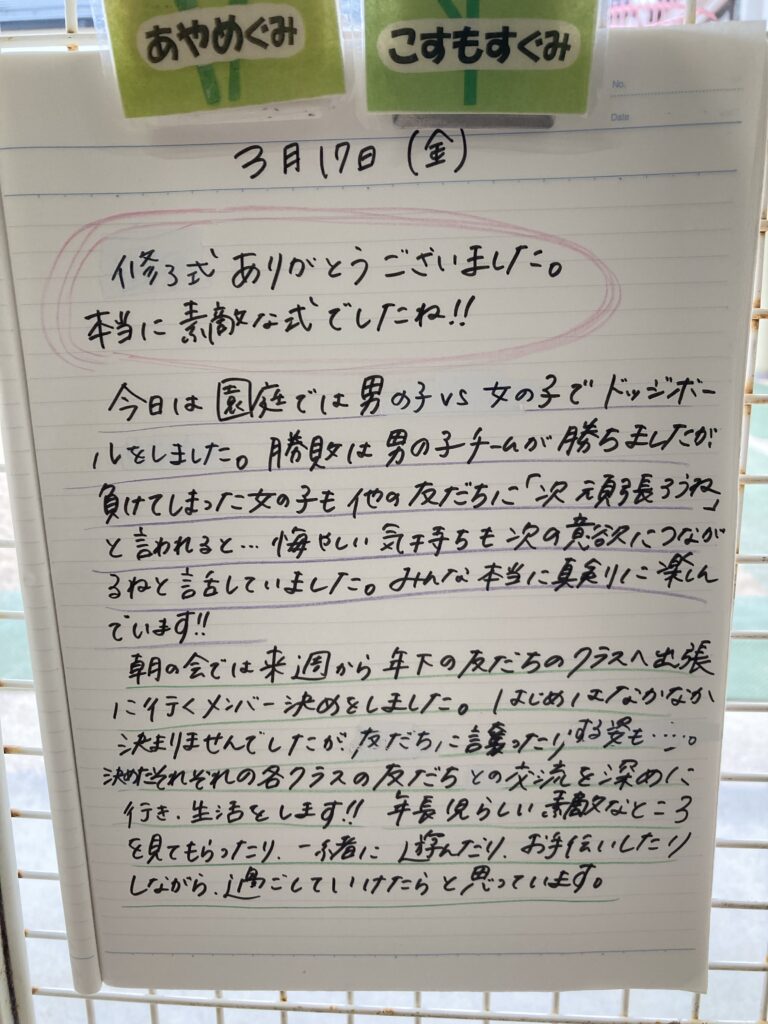 あやめぐみ
こすもすぐみ
No.
Date
3月17日(金)
修了式 ありがとうございました。
本当に素敵な式でしたね!!
今日は園庭では男の子vs女の子でドッジボー
ルをしました。勝敗は男の子チームが勝ちましたが
負けてしまった女の子も他の友だちに「次頑張ろうね」
と言われると…悔やしい気持ちも次の意欲につなが
るねと話していました。みんな本当に真剣に楽しん
でいます!!
朝の会では来週から年下の友だちのクラスへ出張
に行くメンバー決めをしました。はじめはなかなか
決まりませんでしたが、友だちに譲ったりする姿も……。
決めたそれぞれの各クラスの友だちとの交流を深めに
行き、生活をします!!年長児らしい素敵なところ
を見てもらったり、一緒に遊んだり、お手伝いしたり
しながら、過ごしていけたらと思っています。